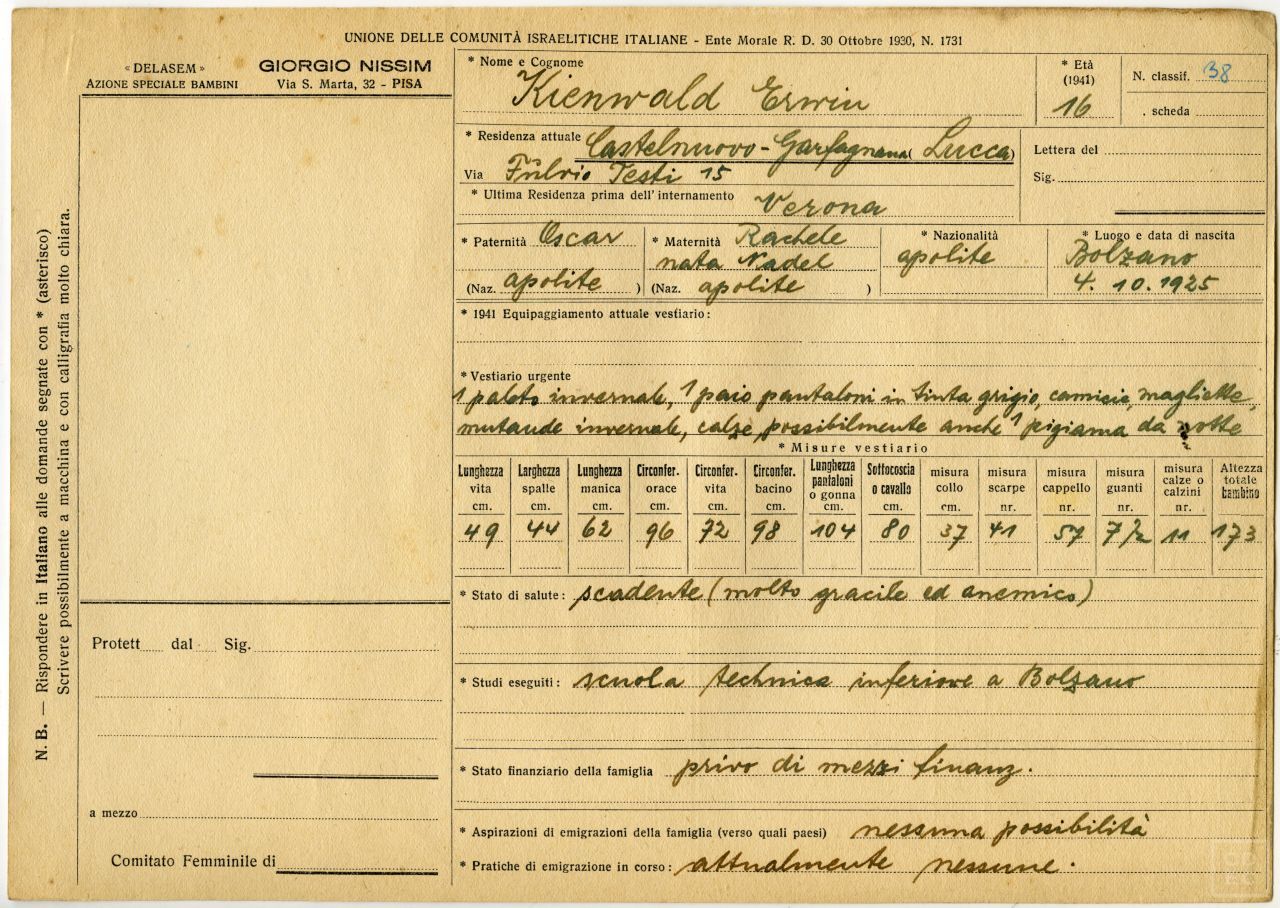 UNIONE DELLE COMUNITÀ ISRAELITICHE ITALIANE - Ente Morale R. D. 30 Ottobre 1930, N. 1731
« DELASEM »
AZIONE SPECIALE BAMBINI
GIORGIO NISSIM
Via S. Marta, 32 - PISA
N. B. — Rispondere in Italiano alle domande segnate con * (asterisco)
Scrivere possibilmente a macchina e con calligrafia molto chiara.
Protett dal Sig.
a mezzo
Comitato Femminile di
* Nome e Cognome
Kienwald Erwin
* Età
(1941)
16
N. classif. 38
. scheda
* Residenza attuale Castelnuovo-Garfagnana (Lucca)
Via Fulvio Testi 15
Lettera del
Sig.
* Ultima Residenza prima dell'internamento Verona
* Paternità Oscar
(Naz. apolite )
* Maternità Rachele
nata Nadel
(Naz. apolite )
* Nazionalità
apolite
* Luogo e data di nascita
Bolzano
4. 10. 1925
* 1941 Equipaggiamento attuale vestiario:
* Vestiario urgente
1 paleto invernale, 1 paio pantaloni in tinta grigio, camicie, magliette,
mutande invernale, calze, possibilmente anche 1 pigiama da notte
* Misure vestiario
Lunghezza vita cm. 49
Larghezza spalle cm. 44
Lunghezza manica cm. 62
Circonfer. orace cm. 96
Circonfer. vita cm. 72
Circonfer. bacino cm. 98
Lunghezza pantaloni o gonna cm. 104
Sottocoscia o cavallo cm. 80
misura collo cm. 37
misura scarpe nr. 41
misura cappello nr. 57
misura guanti nr. 7 1/2
misura calze o calzini nr. 11
Altezza totale bambino 173
* Stato di salute: scadente (molto gracile ed anemico)
* Studi eseguiti: scuola technica inferiore a Bolzano
* Stato finanziario della famiglia privo di mezzi finanz.
* Aspirazioni di emigrazioni della famiglia (verso quali paesi) nessuna possibilità
* Pratiche di emigrazione in corso: attualmente nessune.